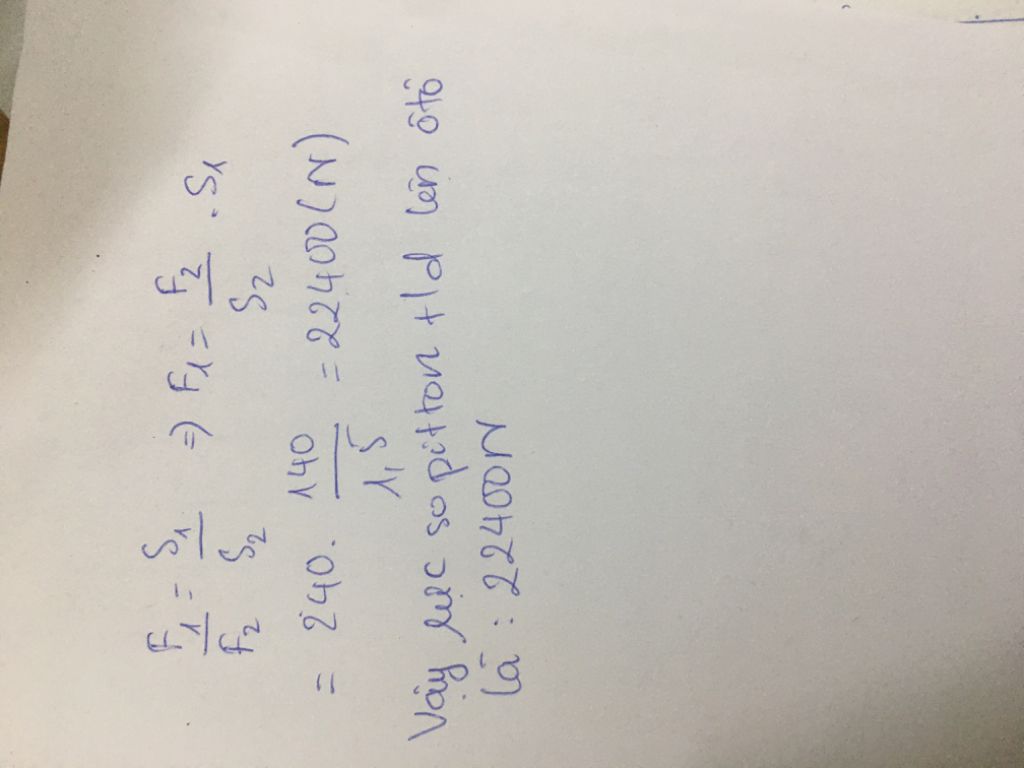 F1/F2 = S1/S2 => F1 = F2/S2 . S1
= 240. 140/1,5 = 22400(N)
Vậy lực so pitton +ld lên ôtô
là : 22400N